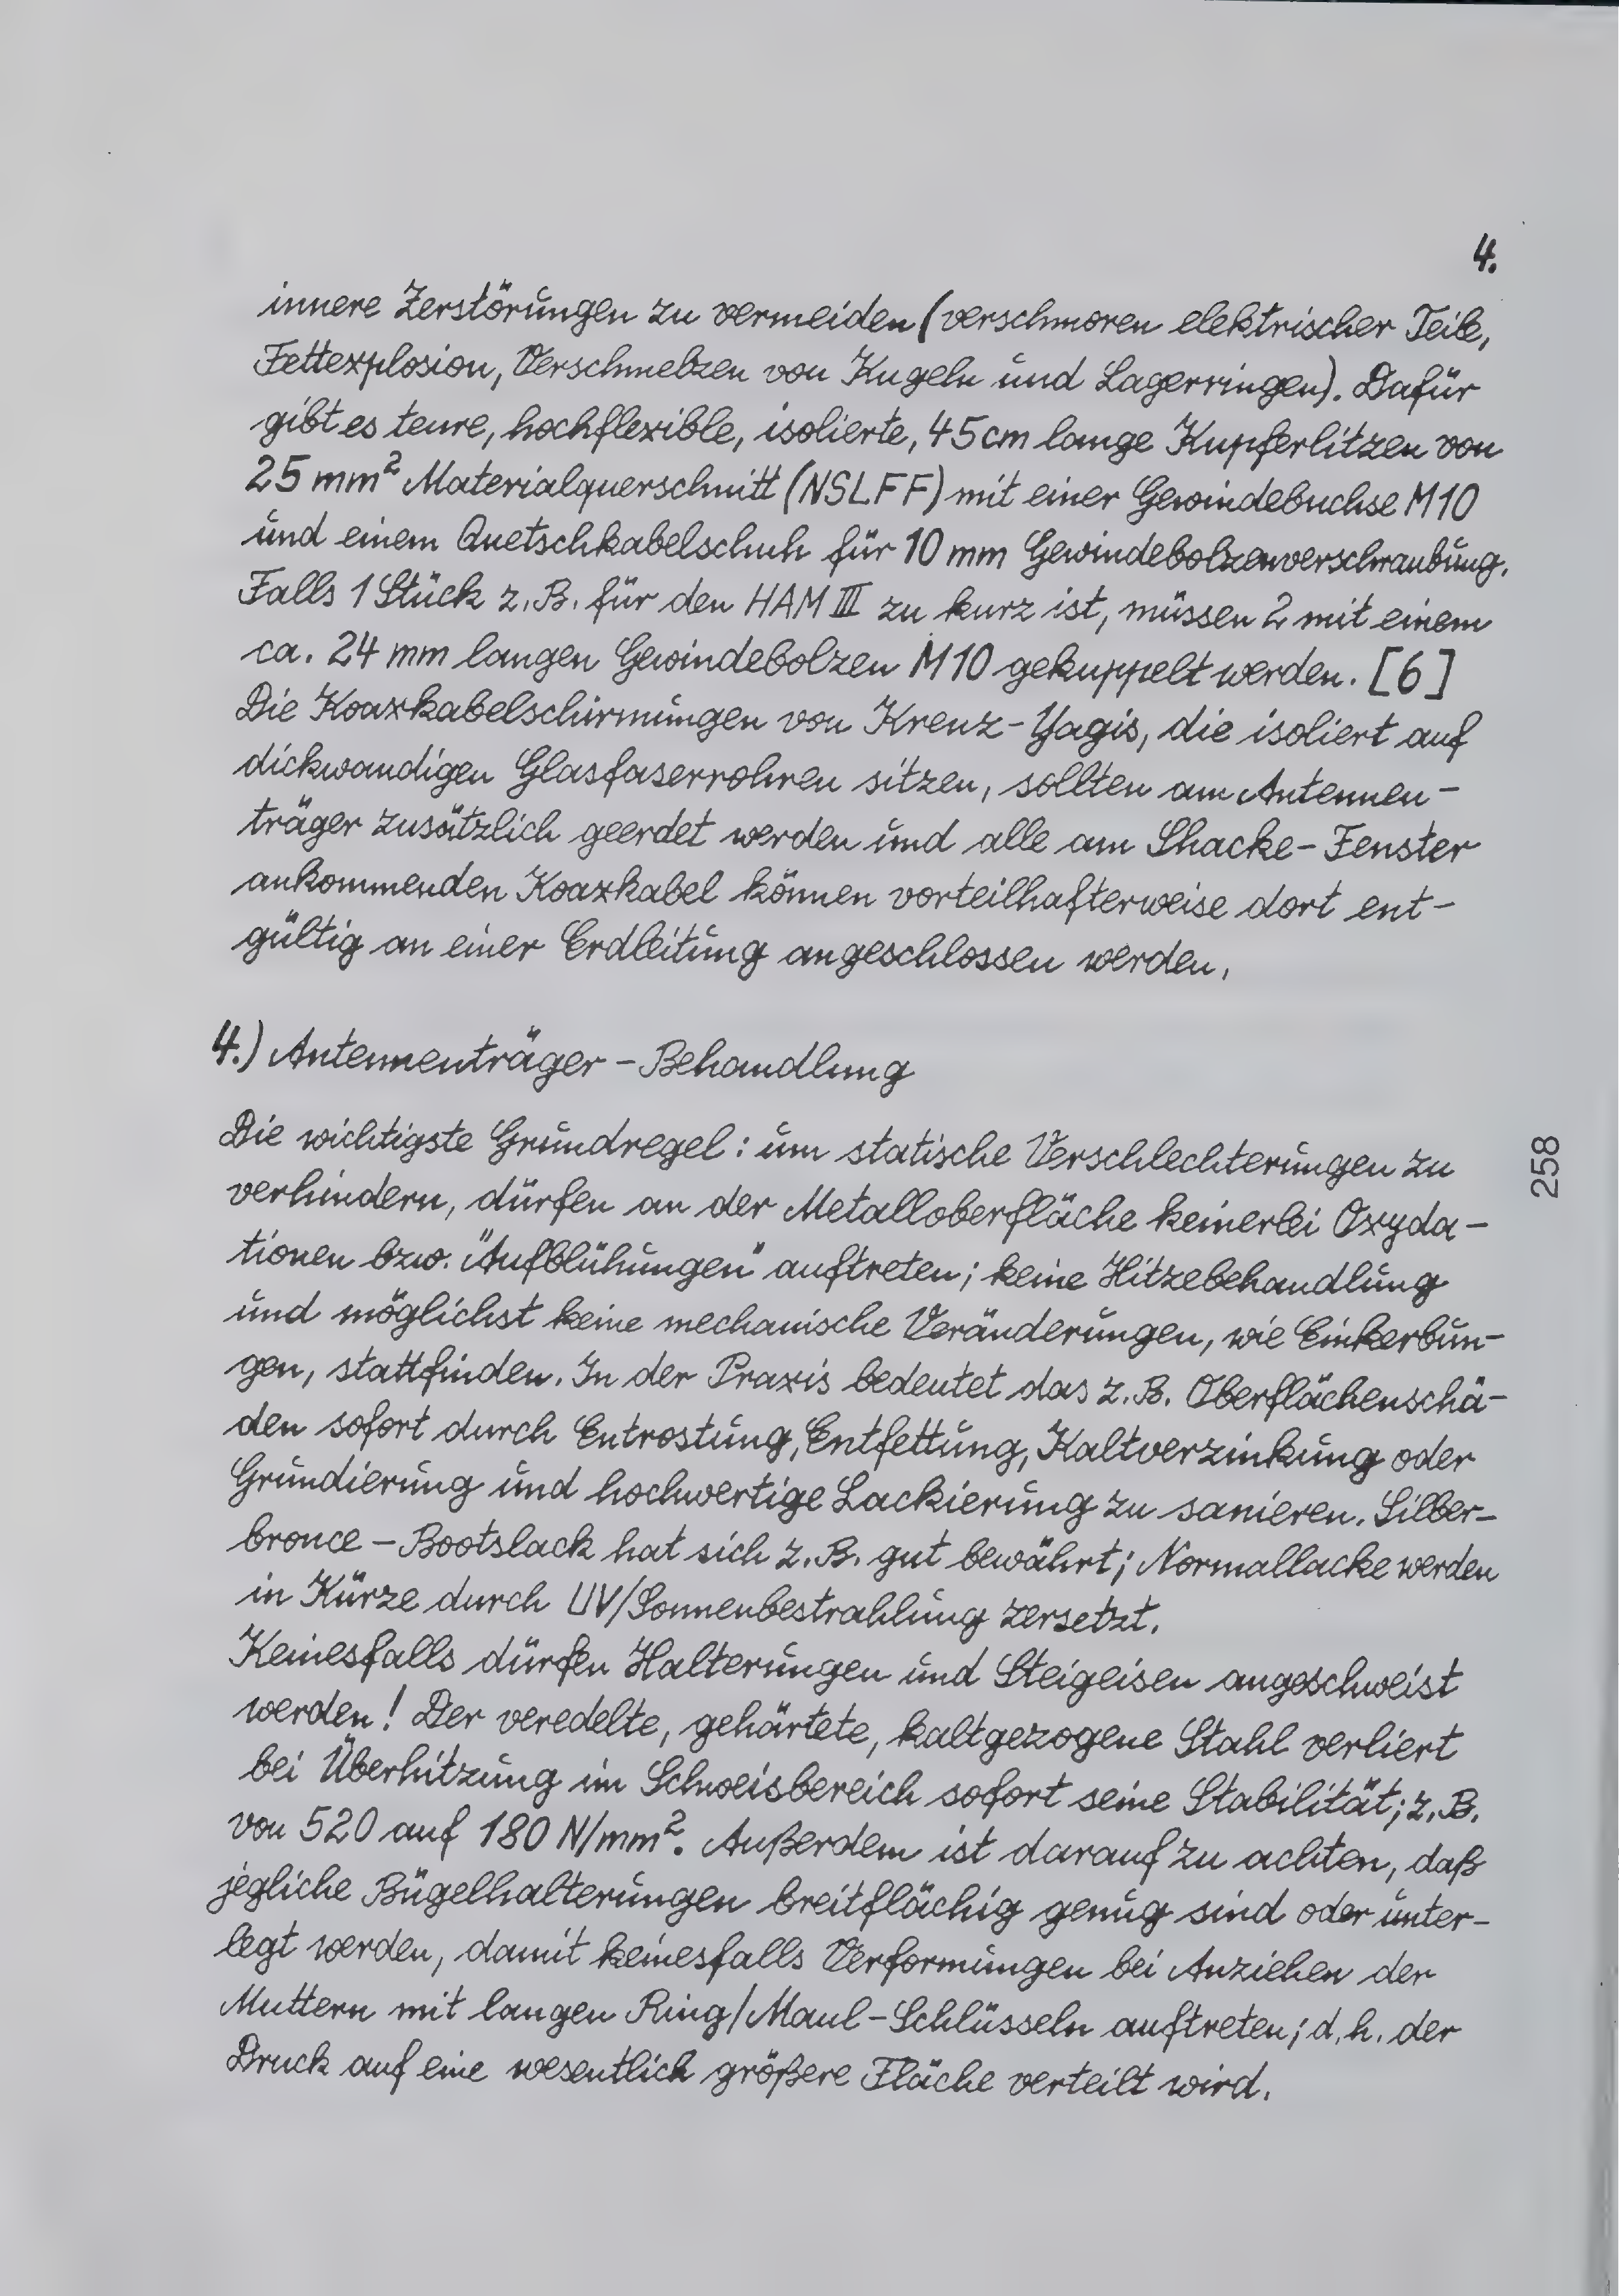 4.
innere Zerstörungen zu vermeiden (verschmoren elektrischer Teile,
Fettexplosion, Verschmelzen von Kugeln und Lagerringen). Dafür
gibt es teure, hochflexible, isolierte, 45cm lange Kupferlitzen von
25 mm² Materialquerschnitt (NSLFF) mit einer Gewindebuchse M10
und einem Quetschkabelschuh für 10 mm Gewindebolzenverschraubung.
Falls 1 Stück z.B. für den HAM III zu kurz ist, müssen 2 mit einem
ca. 24 mm langen Gewindebolzen M10 gekuppelt werden. [6]
Die Koaxkabelschirmungen von Kreuz-Yagis, die isoliert auf
dickwandigen Glasfaserrohren sitzen, sollten am Antennen-
träger zusätzlich geerdet werden und alle am Shacke-Fenster
ankommenden Koaxkabel können vorteilhafterweise dort ent-
gültig an einer Erdleitung angeschlossen werden.
4.) Antennenträger - Behandlung
Die wichtigste Grundregel: um statische Verschlechterungen zu
verhindern, dürfen an der Metalloberfläche keinerlei Oxyda-
tionen bzw. "Aufblühungen" auftreten; keine Hitzebehandlung
und möglichst keine mechanische Veränderungen, wie Einkerbun-
gen, stattfinden. In der Praxis bedeutet das z.B. Oberflächenschä-
den sofort durch Entrostung, Entfettung, Kaltverzinkung oder
Grundierung und hochwertige Lackierung zu sanieren. Silber-
bronce - Bootslack hat sich z.B. gut bewährt; Normallacke werden
in Kürze durch UV/Sonnenbestrahlung zersetzt.
Keinesfalls dürfen Halterungen und Steigeisen angeschweist
werden! Der veredelte, gehärtete, kaltgezogene Stahl verliert
bei Überhitzung im Schweisbereich sofort seine Stabilität; z.B.
von 520 auf 180 N/mm². Außerdem ist darauf zu achten, daß
jegliche Bügelhalterungen breitflächig genug sind oder unter-
legt werden, damit keinesfalls Verformungen bei Anziehen der
Muttern mit langen Ring/Maul-Schlüsseln auftreten; d.h. der
Druck auf eine wesentlich größere Fläche verteilt wird.
258